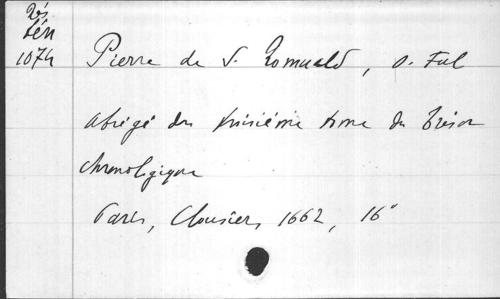 Rés
Lén
1074
Pierre de S. Romuald, o. Ful
Abrégé du troisième tome du Trésor
chronologique
Paris, Clousier, 1662, 16°